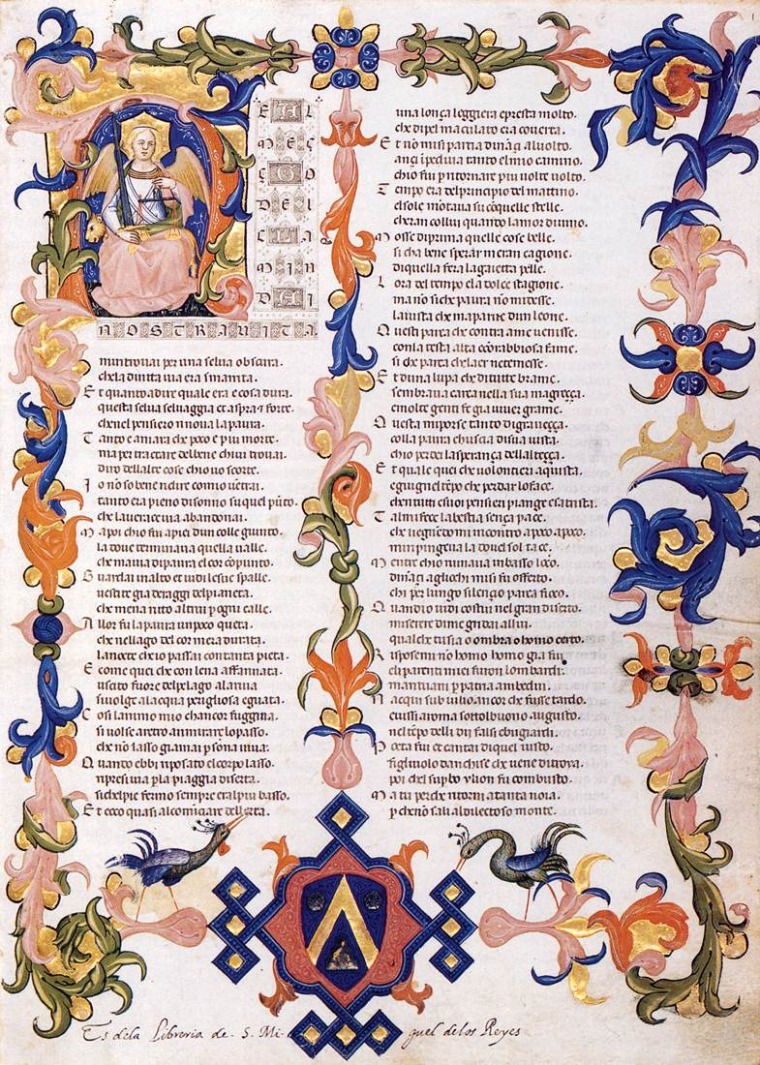 N
EL
MEÇ
ÇO
DEL
CHA
MIN
DI
NOSTRA VITA
mi ritrouai per una selua obscura.
che la diritta uia era smarrita.
Et quanto a dire quale era e cosa dura.
questa selua seluaggia et aspra et forte.
che nel pensero rinoua la paura.
Tanto e amara che poco e piu morte.
ma per tractare del bene chiui trouai.
diro dellaltre cose chio uo scorte.
Io no so bene ridire comio uentrai.
tanto era pieno di sonno su quel puto.
che la uerace uia abandonai.
Mapoi chio fui apiei dun colle giunto.
la doue terminaua quella ualle.
che mauia di paura el cor copunto.
Guardai in alto et uidi le sue spalle.
uestite gia de raggi del pianeta.
che mena ritto altrui p ogni calle.
Allor fu la paura unpoco queta.
che nel lago del cor mera durata.
la nocte chio passai con tanta pieta.
E come quei che con lena affannata.
uscito fuore del pelago alariua
si uolge alacqua perigliosa e guata.
Cosi lanimo mio chancor fuggiua.
si uolse aretro a rimirare lo passo.
che no lasso giamai psona uiua.
Quando ebbi riposato el corpo lasso.
ripresi uia p la piaggia diserta.
si chel pie fermo sempre era l piu basso.
Et ecco quasi al comiciare dellerta.
una lonça leggiera e presta molto.
che di pel maculato era couerta.
Et no mi si partia dinaçi al uolto.
ançi ipediua tanto el mio camino.
chio fui p ritornare piu uolte uolto.
Tempo era del principio del mattino.
el sole motaua su co quelle stelle.
cheran collui quanto lamor diuino.
Mosse di prima quelle cose belle.
si cha bene sperar mera cagione.
di quella fera la gaietta pelle.
Lora del tempo e la dolce stagione.
ma no si che paura no mi desse.
la uista che maparue dun leone.
Questi parea che contra me uenisse.
con la testa alta e co rabbiosa fame.
si che parea che laer ne temesse.
Et duna lupa che di tutte brame.
sembraua carca nella sua magreça.
e molte genti fe gia uiuer grame.
Questa mi porse tanto di graueçça.
colla paura chuscia di sua uista.
chio perdei la sperança dellalteçça.
Et quale quei che uolontieri aquista.
e giugne l tepo che perdar lo face.
che n tutti e suoi pensieri piange e satrista.
Tal mi fece la bestia sença pace.
che uegnedomi incontro apoco apoco.
mi ripingeua la doue l sol tace.
Mentre chio ruinaua in basso loco.
dinaçi agliochi mi si fu offerto.
chi per lungo silençio parea fioco.
Quando uidi costui nel gran diserto.
miserere di me gridai allui.
qual che tu sia o ombra o homo certo.
Risposemi no homo homo gia fui
e li parenti miei furon lombardi.
mantuani p patria ambedui.
Nacqui sub iulio ancor che fusse tardo.
e uissi a roma sotto l buono augusto.
nel tepo delli dii falsi e bugiardi.
Poeta fui et cantai di quel iusto.
figliuolo danchise che uene di troya.
poi che l supbo ylion fu combusto.
Ma tu perche ritorni atanta noia.
p che no sali al dilectoso monte.
Es dela Libreria de. S. Miguel delos Reyes